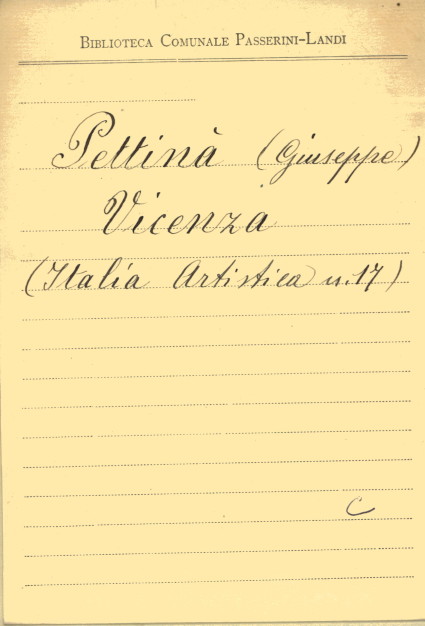 BIBLIOTECA COMUNALE PASSERINI-LANDI
Pettinà (Giuseppe)
Vicenza
(Italia Artistica n. 17)
C